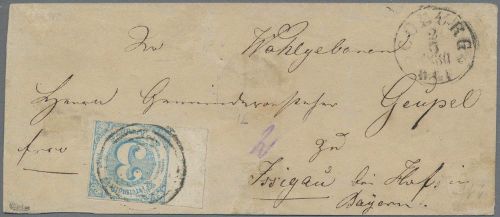 COBURG
2
5
Wohlgeboren
Herrn Gemeindevorsteher Geupel
frco
zu
Issigau bei Hof in
Bayern.
3